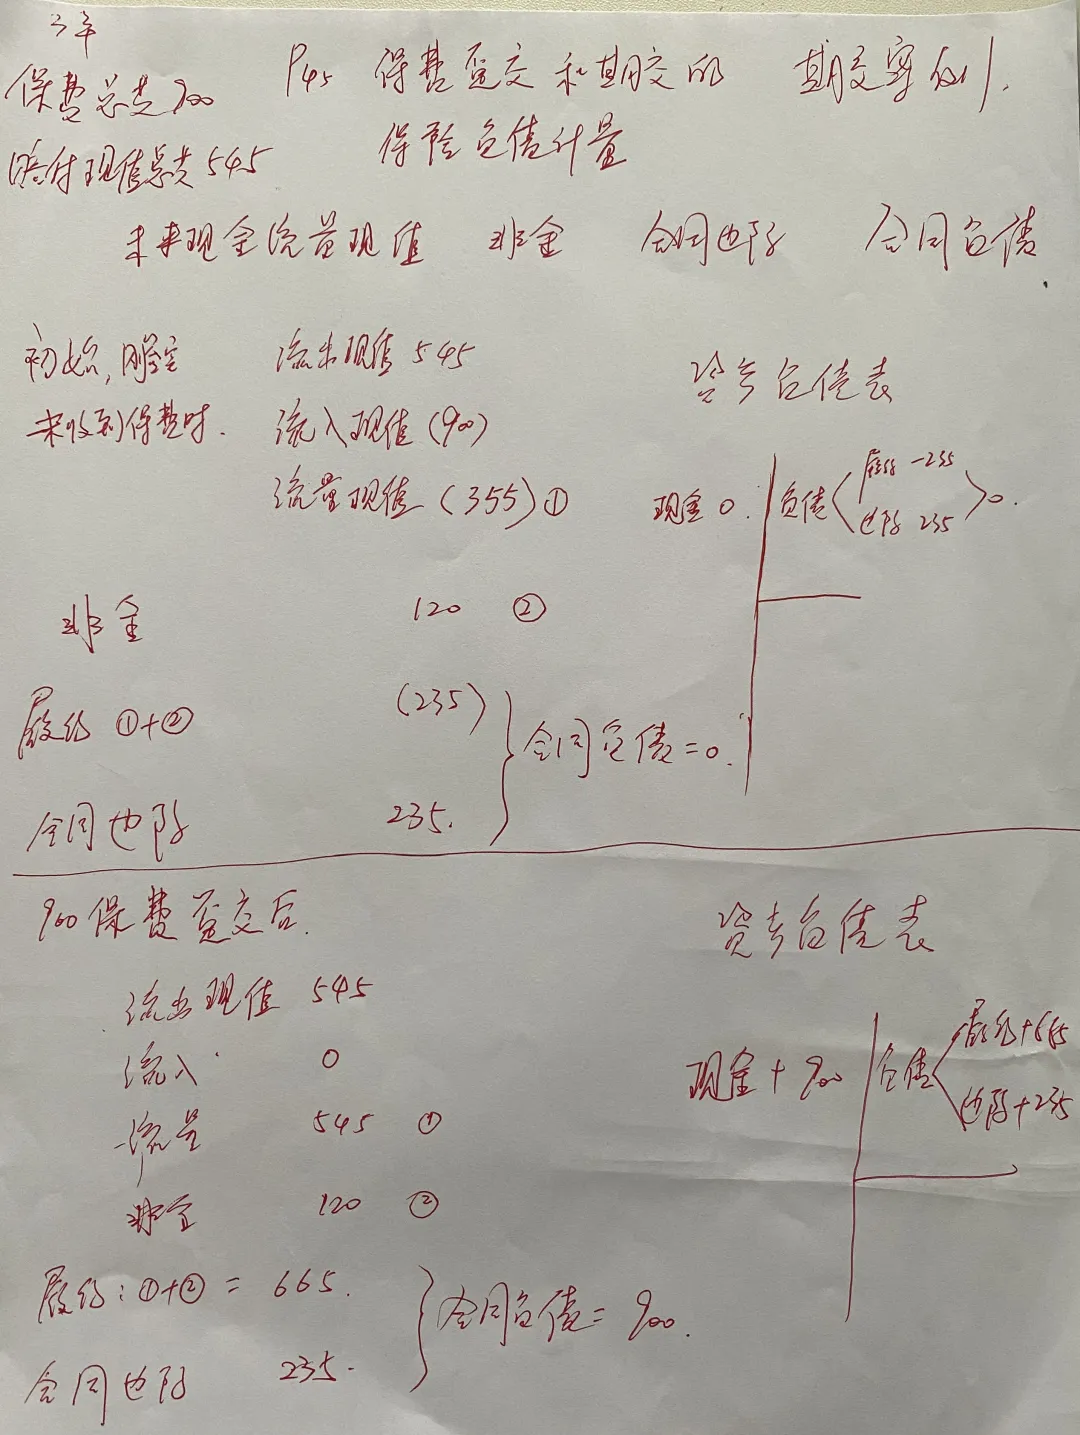 3年
保费总共900
P45 保费趸交和期交的 期交案例1.
保险负债计量
赔付现值总共545
未来现金流量现值 非金 合同边际 合同负债
初始,刚签 流出现值 545
未收到保费时. 流入现值 (900)
流量现值 (355) ①
资产负债表
现金 0. 负债 履约 -235 边际 235 0.
非金 120 ②
履约 ①+② (235)
合同负债=0.
合同边际 235.
900保费趸交后.
流出现值 545
流入 0
流量 545 ①
非金 120 ②
履约:①+②= 665.
合同负债=900.
合同边际 235.
资产负债表
现金+900 负债 履约+665 边际+235